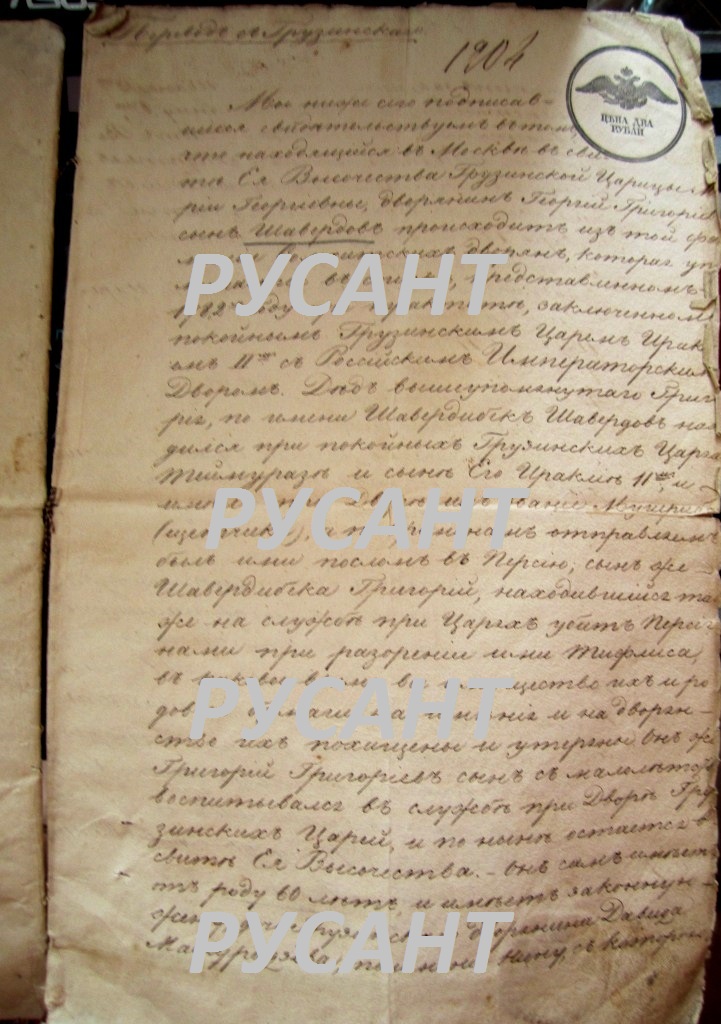 Переводъ съ Грузинскаго.
1904
ЦѢНА ДВА
РУБЛИ
Мы ниже сего подписав-
шіеся свидѣтельствуемъ въ томъ,
что находящійся въ Москвѣ въ сви-
тѣ Ея Высочества Грузинской Царицы Ма-
ріи Георгіевны, дворянинъ Георгій Григорьев
сынъ Шавердовъ происходитъ изъ той фа-
дворянъ, которая уп-
представленномъ
году при трактатѣ, заключенномъ
покойнымъ Грузинскимъ Царемъ Ирак-
ъ II съ Россійскимъ Императорскимъ
Дворомъ. Дѣдъ вышеупомянутаго Григо-
рія, по имени Шавердибекъ Шавердовъ нахо-
дился при покойныхъ Грузинскихъ Царяхъ
Теймуразѣ и сынѣ Его Иракліѣ II, и
имѣлъ при Дворѣ ихъ званіе
а по времянамъ отправляемъ
былъ ими посломъ въ Персію; сынъ же
Шавердибека Григорій, находившійся так-
же на службѣ при Царяхъ убитъ Персія-
нами при разореніи ими Тифлиса,
въ имущество ихъ и ро-
довыя бумаги на имѣнія и на дворян-
ство ихъ похищены и утеряны Онъ же
Григорій Григорьевъ сынъ съ малолѣтства
воспитывался въ службѣ при Дворѣ Гру-
зинскихъ Царей, и по нынѣ остается въ
свитѣ Ея Высочества. – Онъ самъ имѣет
отъ роду 60 лѣтъ, и имѣетъ законную
жену дочь Грузинскаго дворянина Давида
по имени Нину, съ которой
РУСАНТ
РУСАНТ
РУСАНТ
РУСАНТ